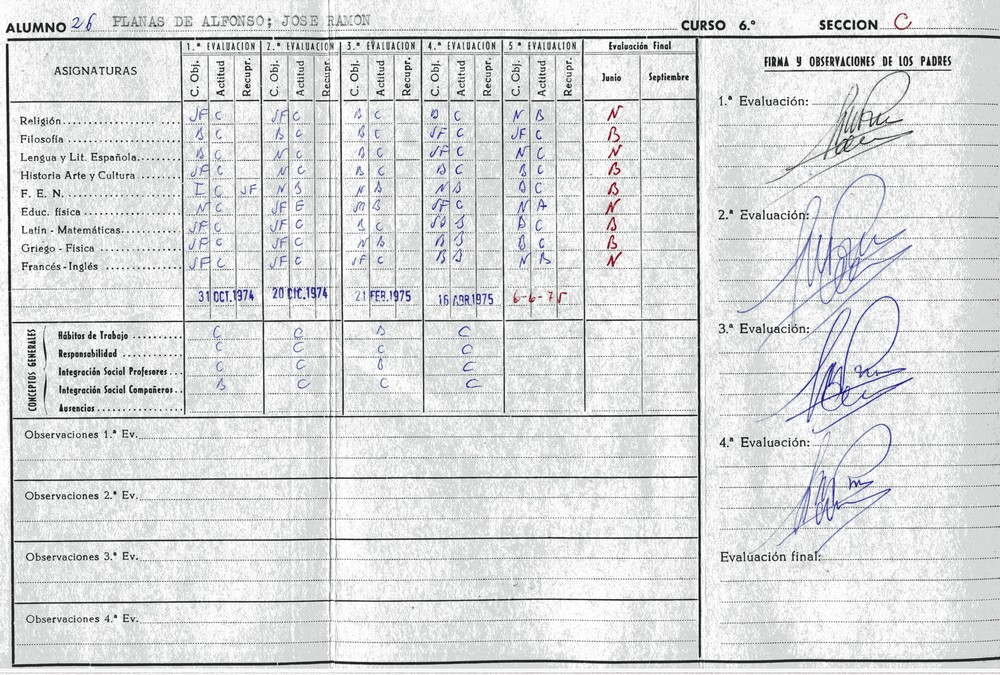 ALUMNO 26 PLANAS DE ALFONSO; JOSE RAMON CURSO 6.º SECCION C
1.ª EVALUACION 2.ª EVALUACION 3.ª EVALUACION 4.ª EVALUACION 5.ª EVALUALION Evaluación Final
ASIGNATURAS C. Obj. Actitud Recupr. C. Obj. Actitud Recupr. C. Obj. Actitud Recupr. C. Obj. Actitud Recupr. C. Obj. Actitud Recupr. Junio Septiembre
Religión SF C SF C B C B C N B N
Filosofía B C B C B C SF C SF C B
Lengua y Lit. Española B C N C B C SF C N C N
Historia Arte y Cultura SF C N C B C B C B C B
F. E. N. I C SF N B N B N B B C B
Educ. física N C SF E B SF C N A N
Latín - Matemáticas SF C SF C B C B B C B
Griego - Física SF C SF C N B B B B C B
Francés - Inglés SF C SF C SF C B B N B N
31 OCT. 1974 20 DIC. 1974 21 FEB. 1975 16 ABR 1975 6-6-75
CONCEPTOS GENERALES
Hábitos de Trabajo C C B C
Responsabilidad C C C C
Integración Social Profesores C C B C
Integración Social Compañeros B C C C
Ausencias
Observaciones 1.ª Ev.
Observaciones 2.ª Ev.
Observaciones 3.ª Ev.
Observaciones 4.ª Ev.
FIRMA Y OBSERVACIONES DE LOS PADRES
1.ª Evaluación:
2.ª Evaluación:
3.ª Evaluación:
4.ª Evaluación:
Evaluación final: